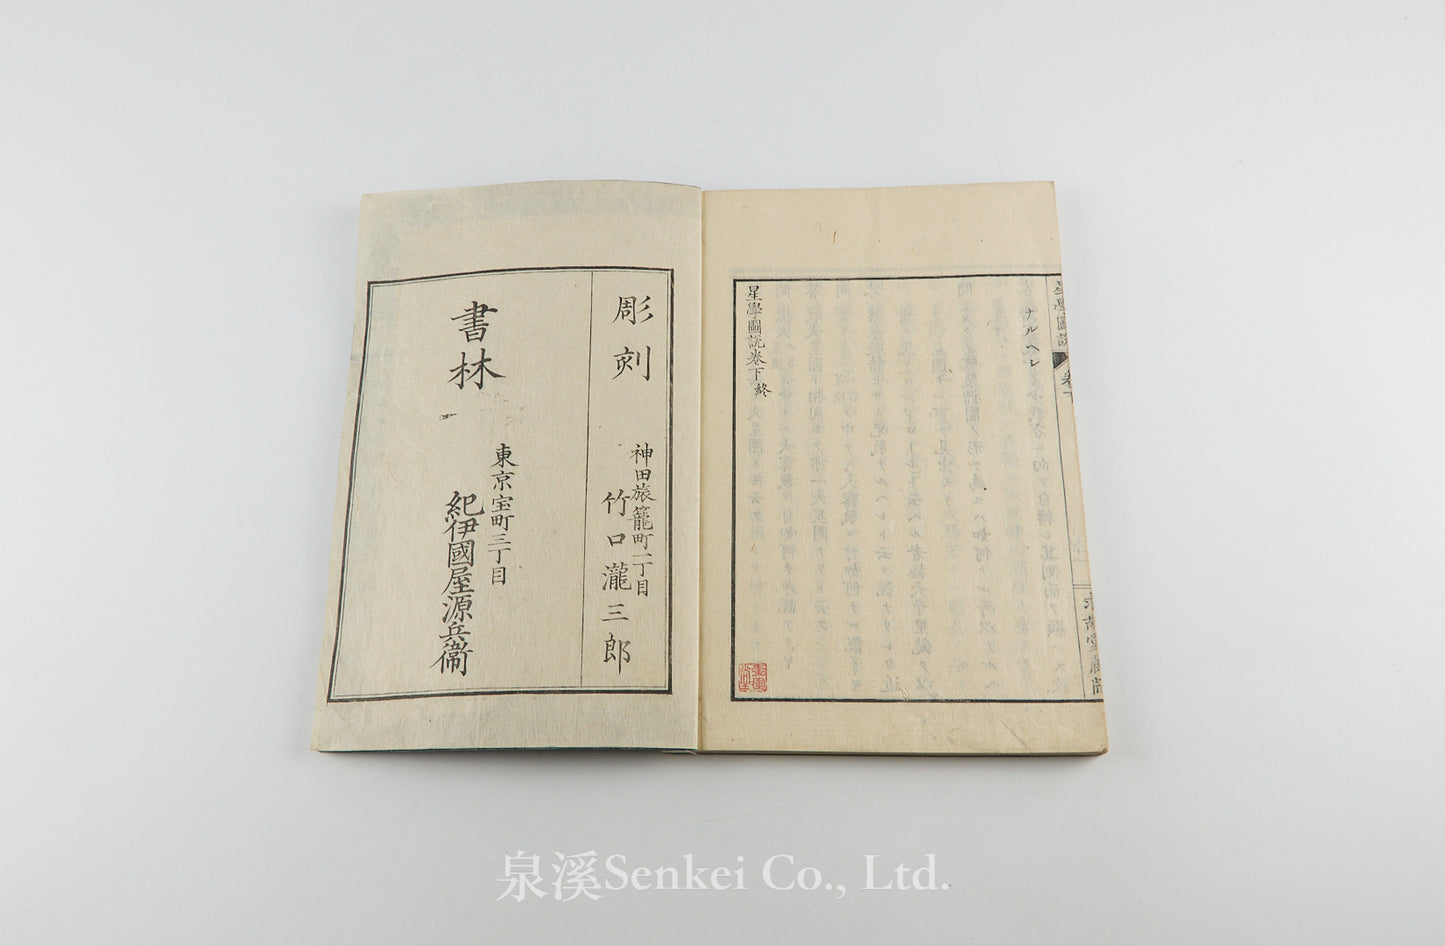 星學圖説
卷下
ナルヘシ
星學圖説卷下終
彫刻
神田旅籠町一丁目
竹口瀧三郎
書林
東京宝町三丁目
紀伊國屋源兵衞
泉溪Senkei Co., Ltd.